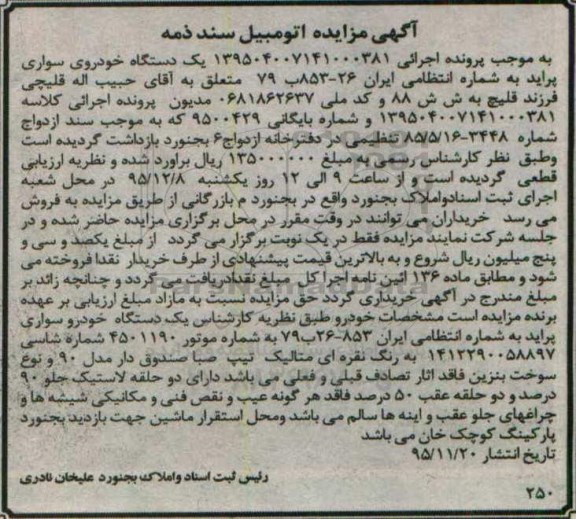 آگهی مزایده اتومبیل سند ذمه
به موجب پرونده اجرائی ۱۳۹۵۰۴۰۰۷۱۴۱۰۰۰۳۸۱ یک دستگاه خودروی سواری
پراید به شماره انتظامی ایران ۲۶-۸۵۳ب ۷۹ متعلق به آقای حبیب اله قلیچی
فرزند قلیچ به ش ش ۸۸ و کد ملی ۰۶۸۱۸۶۲۶۳۷ مدیون پرونده اجرائی کلاسه
۱۳۹۵۰۴۰۰۷۱۴۱۰۰۰۳۸۱ و شماره بایگانی ۹۵۰۰۴۲۹ که به موجب سند ازدواج
شماره ۳۴۴۸-۸۵/۵/۱۶ تنظیمی در دفترخانه ازدواج۶ بجنورد بازداشت گردیده است
وطبق نظر کارشناس رسمی به مبلغ ۱۳۵۰۰۰۰۰۰ ریال براورد شده و نظریه ارزیابی
قطعی گردیده است و از ساعت ۹ الی ۱۲ روز یکشنبه ۹۵/۱۲/۸ در محل شعبه
اجرای ثبت اسنادواملاک بجنورد واقع در بجنورد م بازرگانی از طریق مزایده به فروش
می رسد خریداران می توانند در وقت مقرر در محل برگزاری مزایده حاضر شده و در
جلسه شرکت نمایند مزایده فقط در یک نوبت برگزار می گردد از مبلغ یکصد و سی و
پنج میلیون ریال شروع و به بالاترین قیمت پیشنهادی از طرف خریدار نقدا فروخته می
شود و مطابق ماده ۱۳۶ ائین نامه اجرا کل مبلغ نقدادریافت می گردد و چنانچه زائد بر
مبلغ مندرج در آگهی خریداری گردد حق مزایده نسبت به مازاد مبلغ ارزیابی بر عهده
برنده مزایده است مشخصات خودرو طبق نظریه کارشناس یک دستگاه خودرو سواری
پراید به شماره انتظامی ایران ۸۵۳-۲۶ب۷۹ به شماره موتور ۴۵۰۱۱۹۰ شماره شاسی
۱۴۱۲۲۹۰۰۵۸۸۹۷ به رنگ نقره ای متالیک تیپ صبا صندوق دار مدل ۹۰ و نوع
سوخت بنزین فاقد اثار تصادف قبلی و فعلی می باشد دارای دو حلقه لاستیک جلو ۹۰
درصد و دو حلقه عقب ۵۰ درصد فاقد هر گونه عیب و نقص فنی و مکانیکی شیشه ها و
چراغهای جلو عقب و اینه ها سالم می باشد ومحل استقرار ماشین جهت بازدید بجنورد
پارکینگ کوچک خان می باشد
تاریخ انتشار ۹۵/۱۱/۲۰
رئیس ثبت اسناد واملاک بجنورد علیخان نادری
۲۵۰